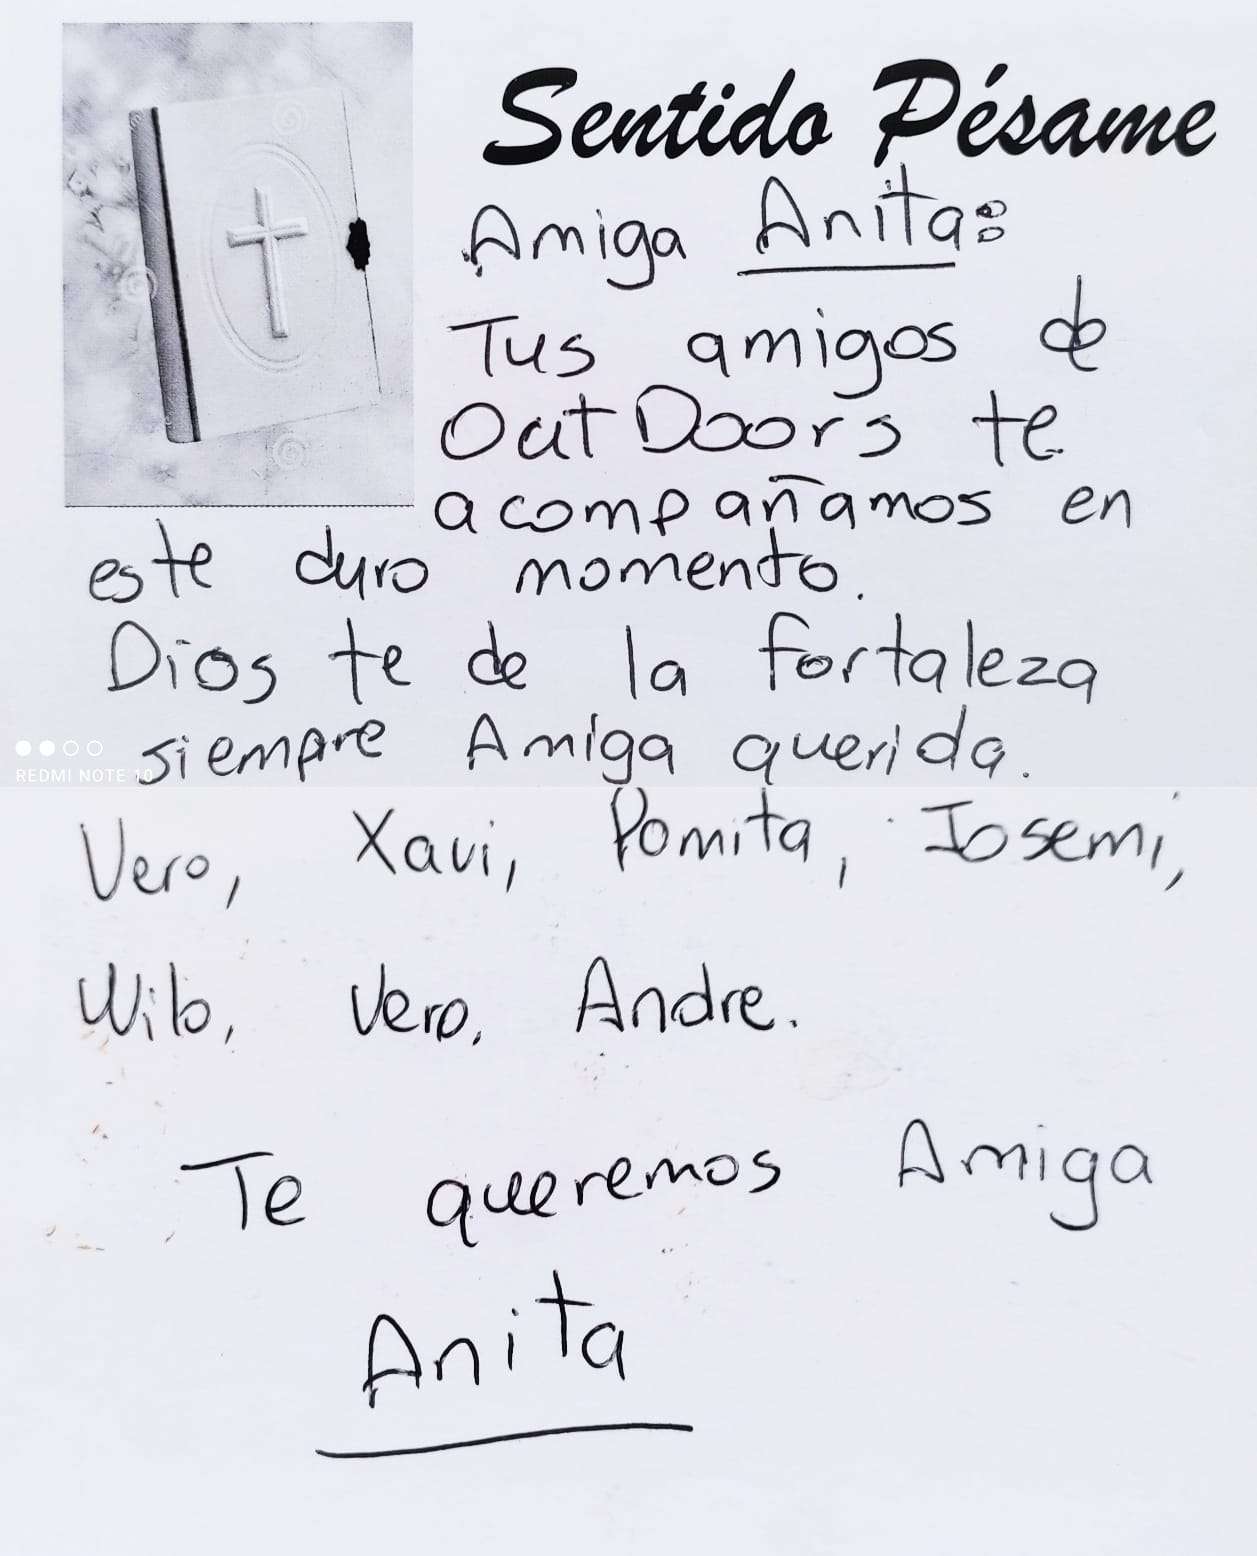 Sentido Pésame
Amiga Anita:
Tus amigos de
OutDoors te
acompañamos en
este duro momento.
Dios te de la fortaleza
siempre Amiga querida.
REDMI NOTE 10
Vero, Xavi, Pomita, Josemi,
Wilo, Vero, Andre.
Te queremos Amiga
Anita